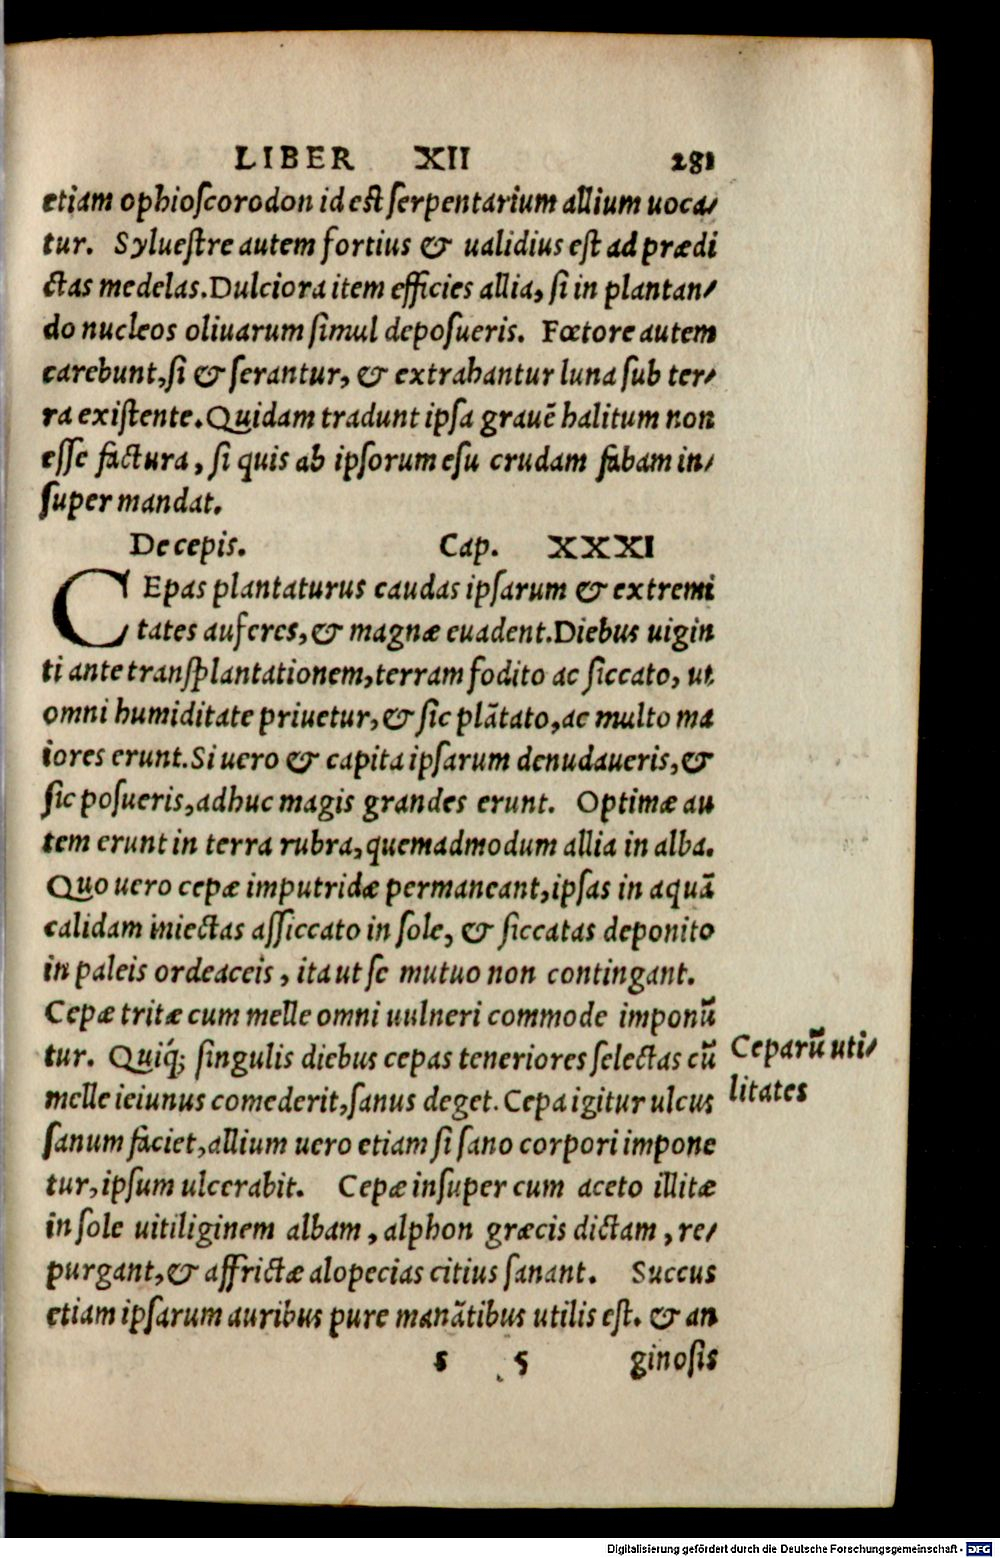 LIBER XII 281
etiam ophioſcorodon id eſt ſerpentarium allium uoca/
tur. Sylueſtre autem fortius & ualidius eſt ad prædi
ctas medelas. Dulciora item efficies allia, ſi in plantan/
do nucleos oliuarum ſimul depoſueris. Fœtore autem
carebunt, ſi & ſerantur, & extrahantur luna ſub ter/
ra exiſtente. Quidam tradunt ipſa grauē halitum non
eſſe factura, ſi quis ab ipſorum eſu crudam fabam in/
ſuper mandat.
De cepis. Cap. XXXI
CEpas plantaturus caudas ipſarum & extremi
tates auferes, & magnæ euadent. Diebus uigin
ti ante tranſplantationem, terram fodito ac ſiccato, ut
omni humiditate priuetur, & ſic plātato, ac multo ma
iores erunt. Si uero & capita ipſarum denudaueris, &
ſic poſueris, adhuc magis grandes erunt. Optimæ au
tem erunt in terra rubra, quemadmodum allia in alba.
Quo uero cepæ imputridæ permaneant, ipſas in aquā
calidam iniectas aſſiccato in ſole, & ſiccatas deponito
in paleis ordeaceis, ita ut ſe mutuo non contingant.
Cepæ tritæ cum melle omni uulneri commode imponū
tur. Quiq́; ſingulis diebus cepas teneriores ſelectas cū
melle ieiunus comederit, ſanus deget. Cepa igitur ulcus
ſanum faciet, allium uero etiam ſi ſano corpori impone
tur, ipſum ulcerabit. Cepæ inſuper cum aceto illitæ
in ſole uitiliginem albam, alphon græcis dictam, re/
purgant, & affrictæ alopecias citius ſanant. Succus
etiam ipſarum auribus pure manātibus utilis eſt. & an
s 5 ginoſis
Ceparū uti/
litates
Digitalisierung gefördert durch die Deutsche Forschungsgemeinschaft - DFG